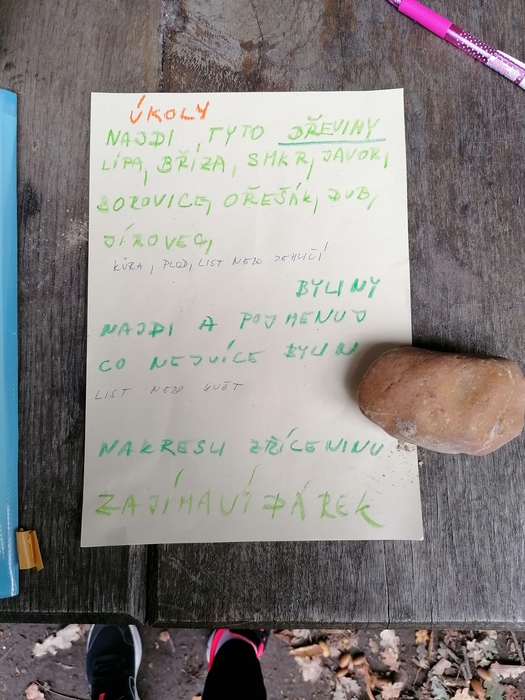 ÚKOLY
NAJDI TYTO DŘEVINY
LÍPA, BŘÍZA, SMKR, JAVOR,
BOROVICE, OŘEŠÁK, DUB,
JÍROVEC,
KŮRA, PLOD, LIST NEBO JEHLIČÍ
BYLINY
NAJDI A POJMENUJ
CO NEJVÍCE BYLIN
LIST NEBO KVĚT
NAKRESLI ZŘÍCENINU
ZAJÍMAVÝ PÁREK